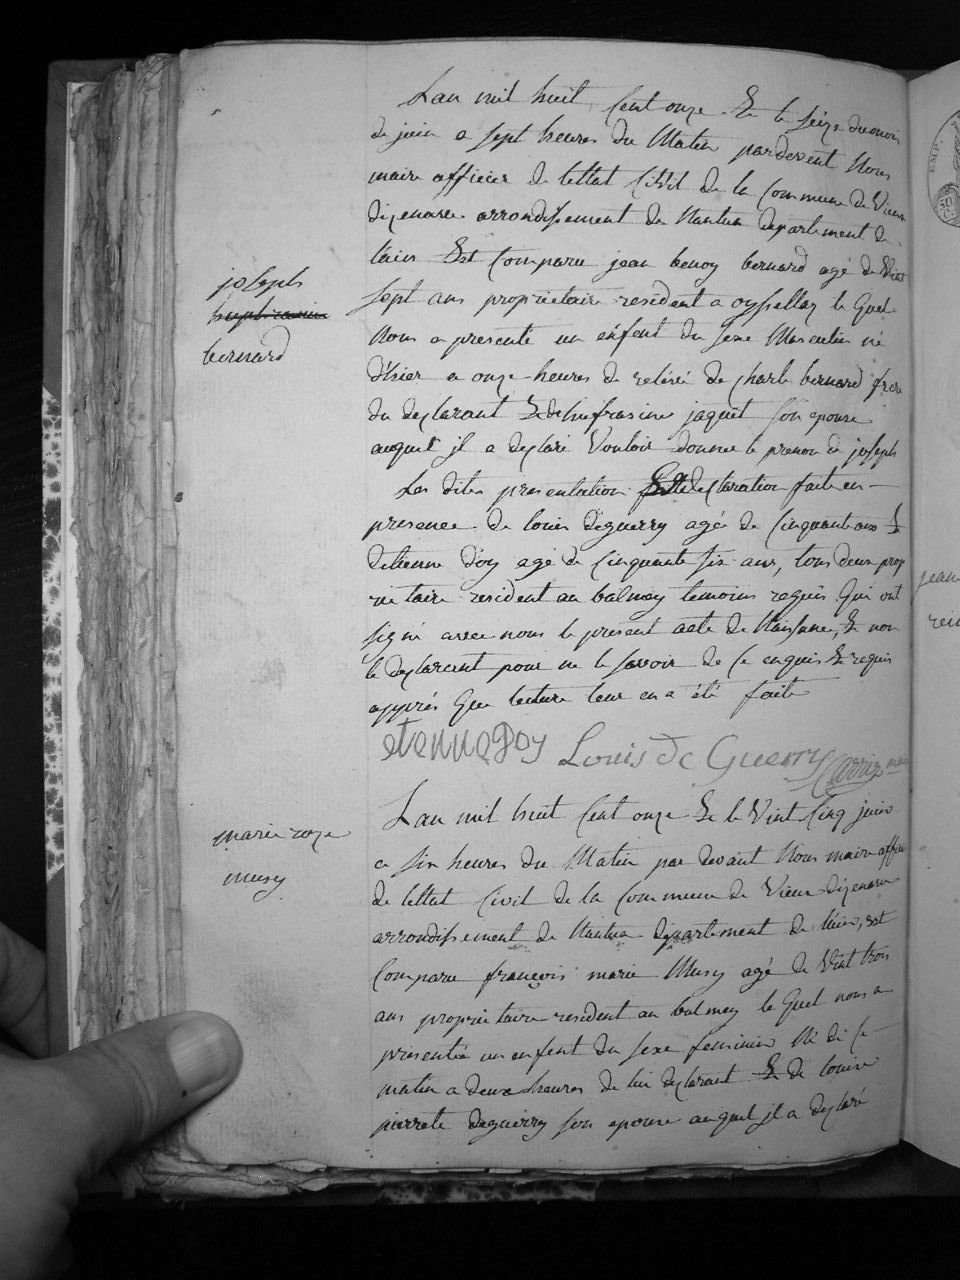 Lan mil huit Cent onze Et le seize du mois
de juin a sept heures du Matin pardevent Nous
maire officier de lettat Civil de la Commune de Vieux
dizenave arrondissement de Nantua departement de
lain Est Comparu jean benoy bernard agé de Vint
joseph
sept ans proprietaire resident a oyssellaz le Quel
bernard
Nous a presenté un enfent du sexe Masculin né
d'hier a onze heures de relevé de charle bernard frere
du declarant Et de hufrasine jaquet son epouse
auquel jl a declaré Vouloir donner le prenom de joseph
Les dites presentation Et declaration faite en
presence de louis deguerry agé de Cinquant ans Et
detienne d'oy agé de Cinquante six ans, tous deux prop
rietaire resident au balmay temoins requis Qui ont
signé avec nous le present acte de Naissance, Et non
le declarent pour ne le savoir de ce enquis Et requis
apprés Que lecture leur en a été faite
etenne Doy Louis de Guerry
Lan mil huit Cent onze Et le Vint Cinq juin
marie roze
musy
a six heures du Matin par devant Nous maire officier
de lettat Civil de la Commune de Vieux dizenave
arrondissement de Nantua departement de lain, est
Comparu françois marie Musy agé de Vint trois
ans proprietaire resident au balmey le Quel nous a
presentée un enfent du sexe feminin Né de ce
matin a deux heures de lui declarant Et de louise
pierrete deguerry son epouse auquel jl a declaré
jean
EMP.